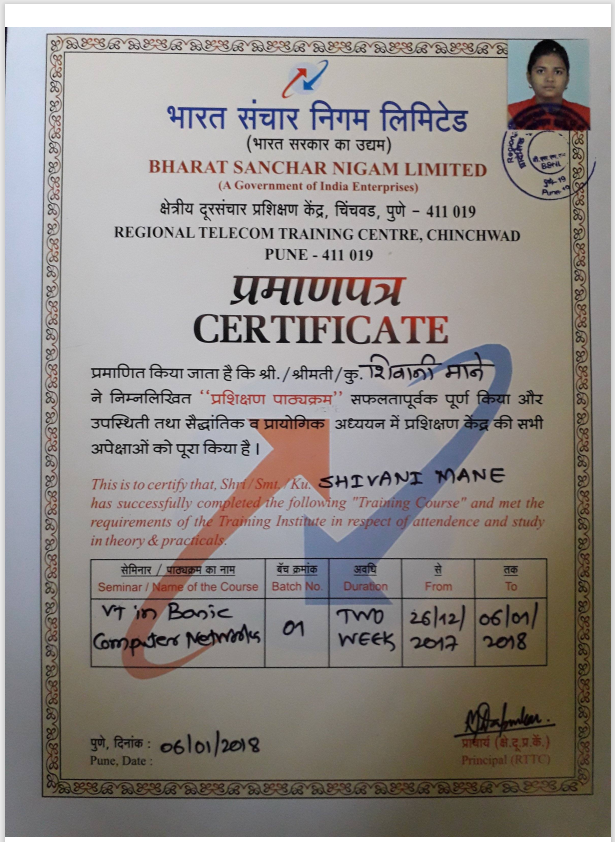 भारत संचार निगम लिमिटेड
(भारत सरकार का उद्यम)
BHARAT SANCHAR NIGAM LIMITED
(A Government of India Enterprises)
क्षेत्रीय दूरसंचार प्रशिक्षण केंद्र, चिंचवड, पुणे - 411 019
REGIONAL TELECOM TRAINING CENTRE, CHINCHWAD
PUNE - 411 019
प्रमाणपत्र
CERTIFICATE
प्रमाणित किया जाता है कि श्री./श्रीमती/कु. शिवानी माने
ने निम्नलिखित ‘‘प्रशिक्षण पाठ्यक्रम’’ सफलतापूर्वक पूर्ण किया और
उपस्थिती तथा सैद्धांतिक व प्रायोगिक अध्ययन में प्रशिक्षण केंद्र की सभी
अपेक्षाओं को पूरा किया है ।
This is to certify that, Shri / Smt. / Ku. SHIVANI MANE
has successfully completed the following "Training Course" and met the
requirements of the Training Institute in respect of attendence and study
in theory & practicals.
सेमिनार / पाठ्यक्रम का नाम बॅच क्रमांक अवधि से तक
Seminar / Name of the Course Batch No. Duration From To
VT in Basic 01 TWO 26/12/ 06/01/
Computer Networks WEEK 2017 2018
पुणे, दिनांक : 06/01/2018
Pune, Date :
प्राचार्य (क्षे.दू.प्र.कें.)
Principal (RTTC)
BSNL